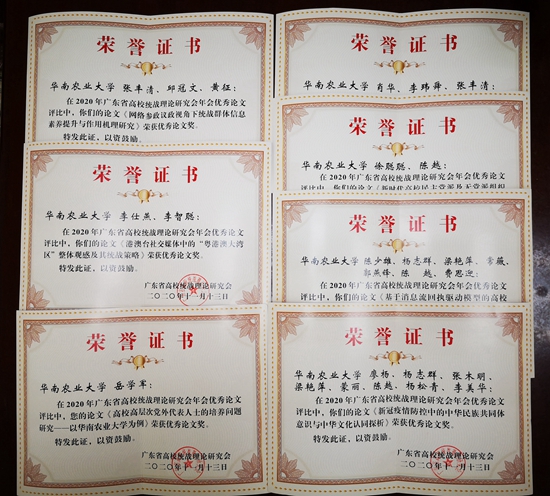 荣誉证书
华南农业大学 张丰清、邱冠文、黄征:
在2020年广东省高校统战理论研究会年会优秀论文
评比中，你们的论文《网络参政议政视角下统战群体信息
素养提升与作用机理研究》荣获优秀论文奖。
特发此证，以资鼓励。
荣誉证书
华南农业大学 李仕燕、李智聪:
在2020年广东省高校统战理论研究会年会优秀论文
评比中，你们的论文《港澳台社交媒体中的“粤港澳大湾
区”整体观感及其统战策略》荣获优秀论文奖。
特发此证，以资鼓励。
广东省高校统战理论研究会
二〇二〇年十一月十三日
荣誉证书
华南农业大学 岳学军:
在2020年广东省高校统战理论研究会年会优秀论文
评比中，您的论文《高校高层次党外代表人士的培养问题
研究—以华南农业大学为例》荣获优秀论文奖。
特发此证，以资鼓励。
广东省高校统战理论研究会
二〇二〇年十一月十三日
荣誉证书
华南农业大学 肖华、李玮舜、张丰清:
荣誉证书
华南农业大学 徐聪聪、陈越:
在2020年广东省高校统战理论研究会年会优秀论文
评比中，你们的论文《新时代高校民主党派及无党派组织
荣誉证书
华南农业大学 陈少雄、杨志群、梁艳萍、常薇、
郭燕锋、陈越、费思迎:
在2020年广东省高校统战理论研究会年会优秀论文
评比中，你们的论文《基于消息流回执驱动模型的高校
荣誉证书
华南农业大学 廖杨、杨志群、张木明、
梁艳萍、蒙丽、陈越、杨松青、李美华:
在2020年广东省高校统战理论研究会年会优秀论文
评比中，你们的论文《新冠疫情防控中的中华民族共同体
意识与中华文化认同探析》荣获优秀论文奖。
特发此证，以资鼓励。
广东省高校统战理论研究会
二〇二〇年十一月十三日